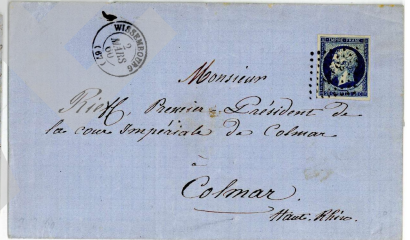 WISSEMBOURG
2
MARS
60
(67)
EMPIRE FRANC
Monsieur
Rieff, Premier Président de
la cour Impériale de Colmar
à
Colmar.
Haut-Rhin.